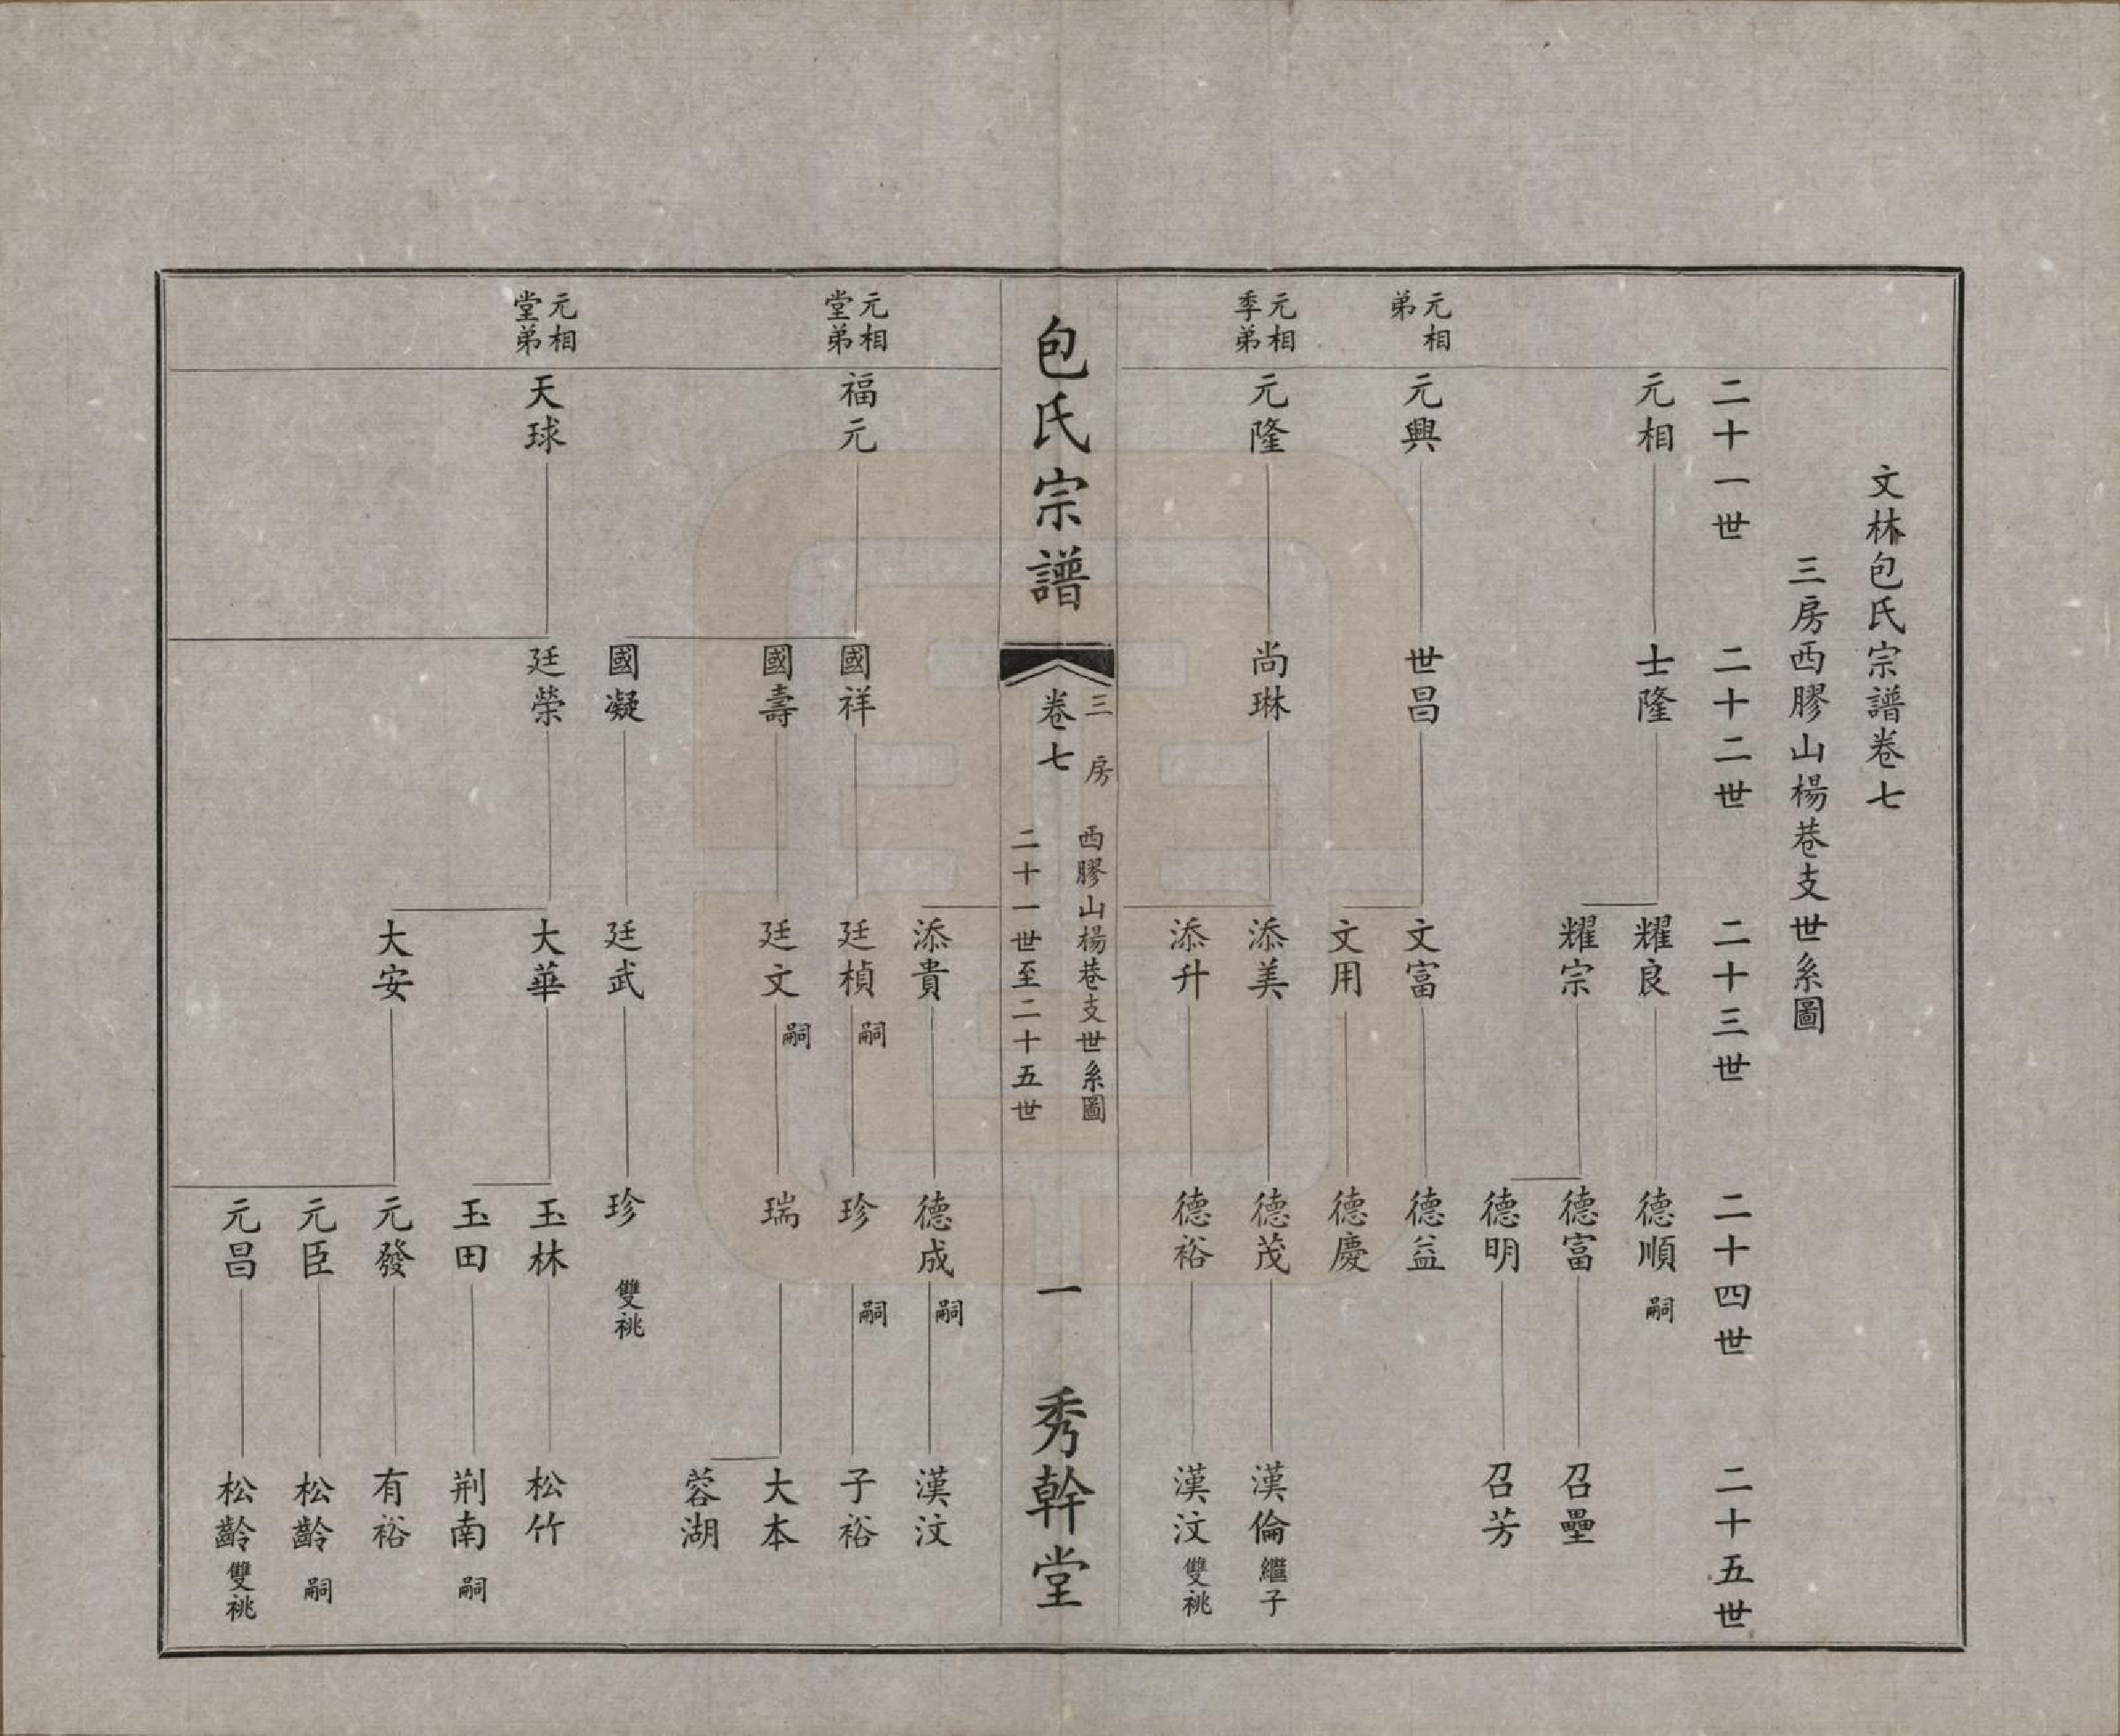 文林包氏宗譜卷七
三房西膠山楊巷支世系圖
二十一世 二十二世 二十三世 二十四世 二十五世
元相 士隆 耀良 德順 嗣
耀宗 德富 召壘
德明 召芳
元相弟 元興 世昌 文富 德益
文用 德慶
元相季弟 元隆 尚琳 添美 德茂 漢倫 繼子
添升 德裕 漢汶 雙祧
包氏宗譜 卷七 一 秀幹堂
三房 西膠山楊巷支世系圖
二十一世至二十五世
添貴 德成 嗣 漢汶
元相堂弟 福元 國祥 廷楨 嗣 珍 嗣 子裕
國壽 廷文 嗣 瑞 大本
蓉湖
國凝 廷武 珍 雙祧
元相堂弟 天球 廷榮 大華 玉林 松竹
玉田 荆南 嗣
大安 元發 有裕
元臣 松齡 嗣
元昌 松齡 雙祧